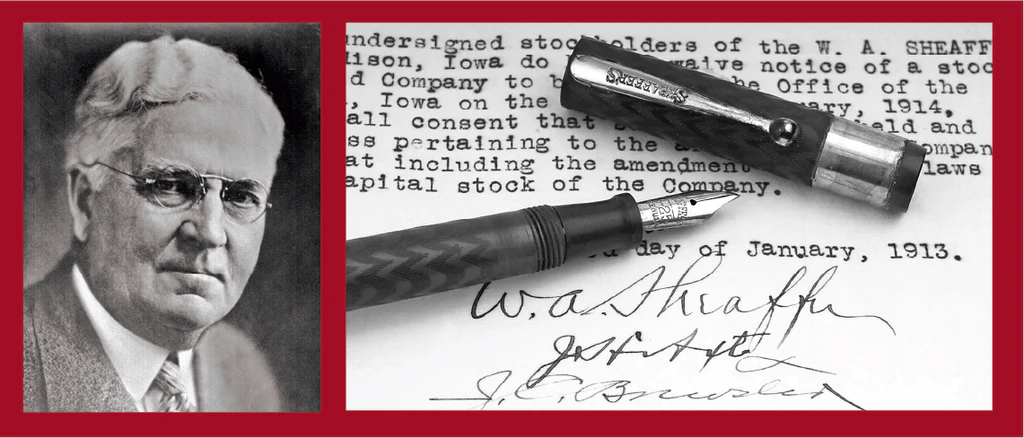 undersigned stockholders of the W. A. SHEAFF
dison, Iowa do waive notice of a stoc
d Company to b the Office of the
, Iowa on the ary, 1914,
all consent that held and
ss pertaining to the a ompan
at including the amendment laws
apital stock of the Company.
day of January, 1913.
SHEAFFER'S
W. A. Sheaffer
J. C. Brewster